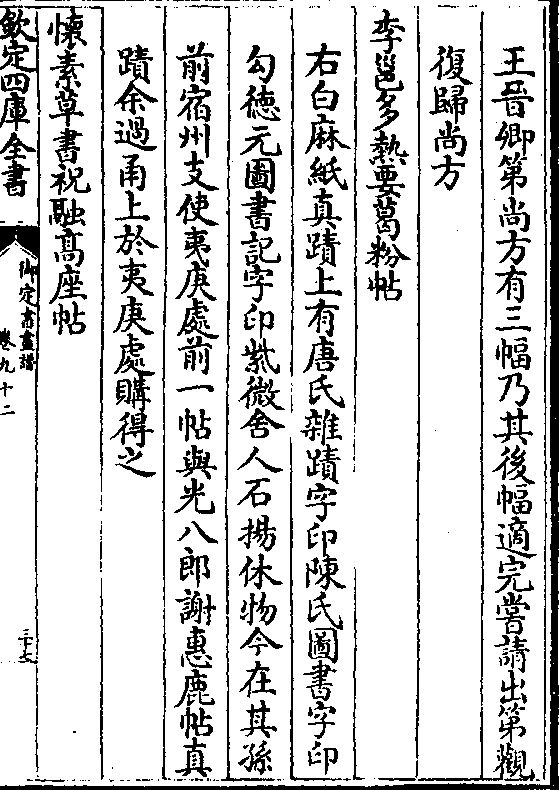 王晉卿第尚方有三幅乃其後幅適完嘗請出第觀
復歸尚方
李邕多熱要葛粉帖
右白麻紙真蹟上有唐氏雜蹟字印陳氏圖書字印
勾德元圖書記字印紫微舍人石揚休物今在其孫
前宿州支使夷庚處前一帖與光八郎謝惠鹿帖真
蹟余過甬上於夷庚處購得之
懷素草書祝融高座帖
欽定四庫全書
御定書畫譜
卷九十二
三十七